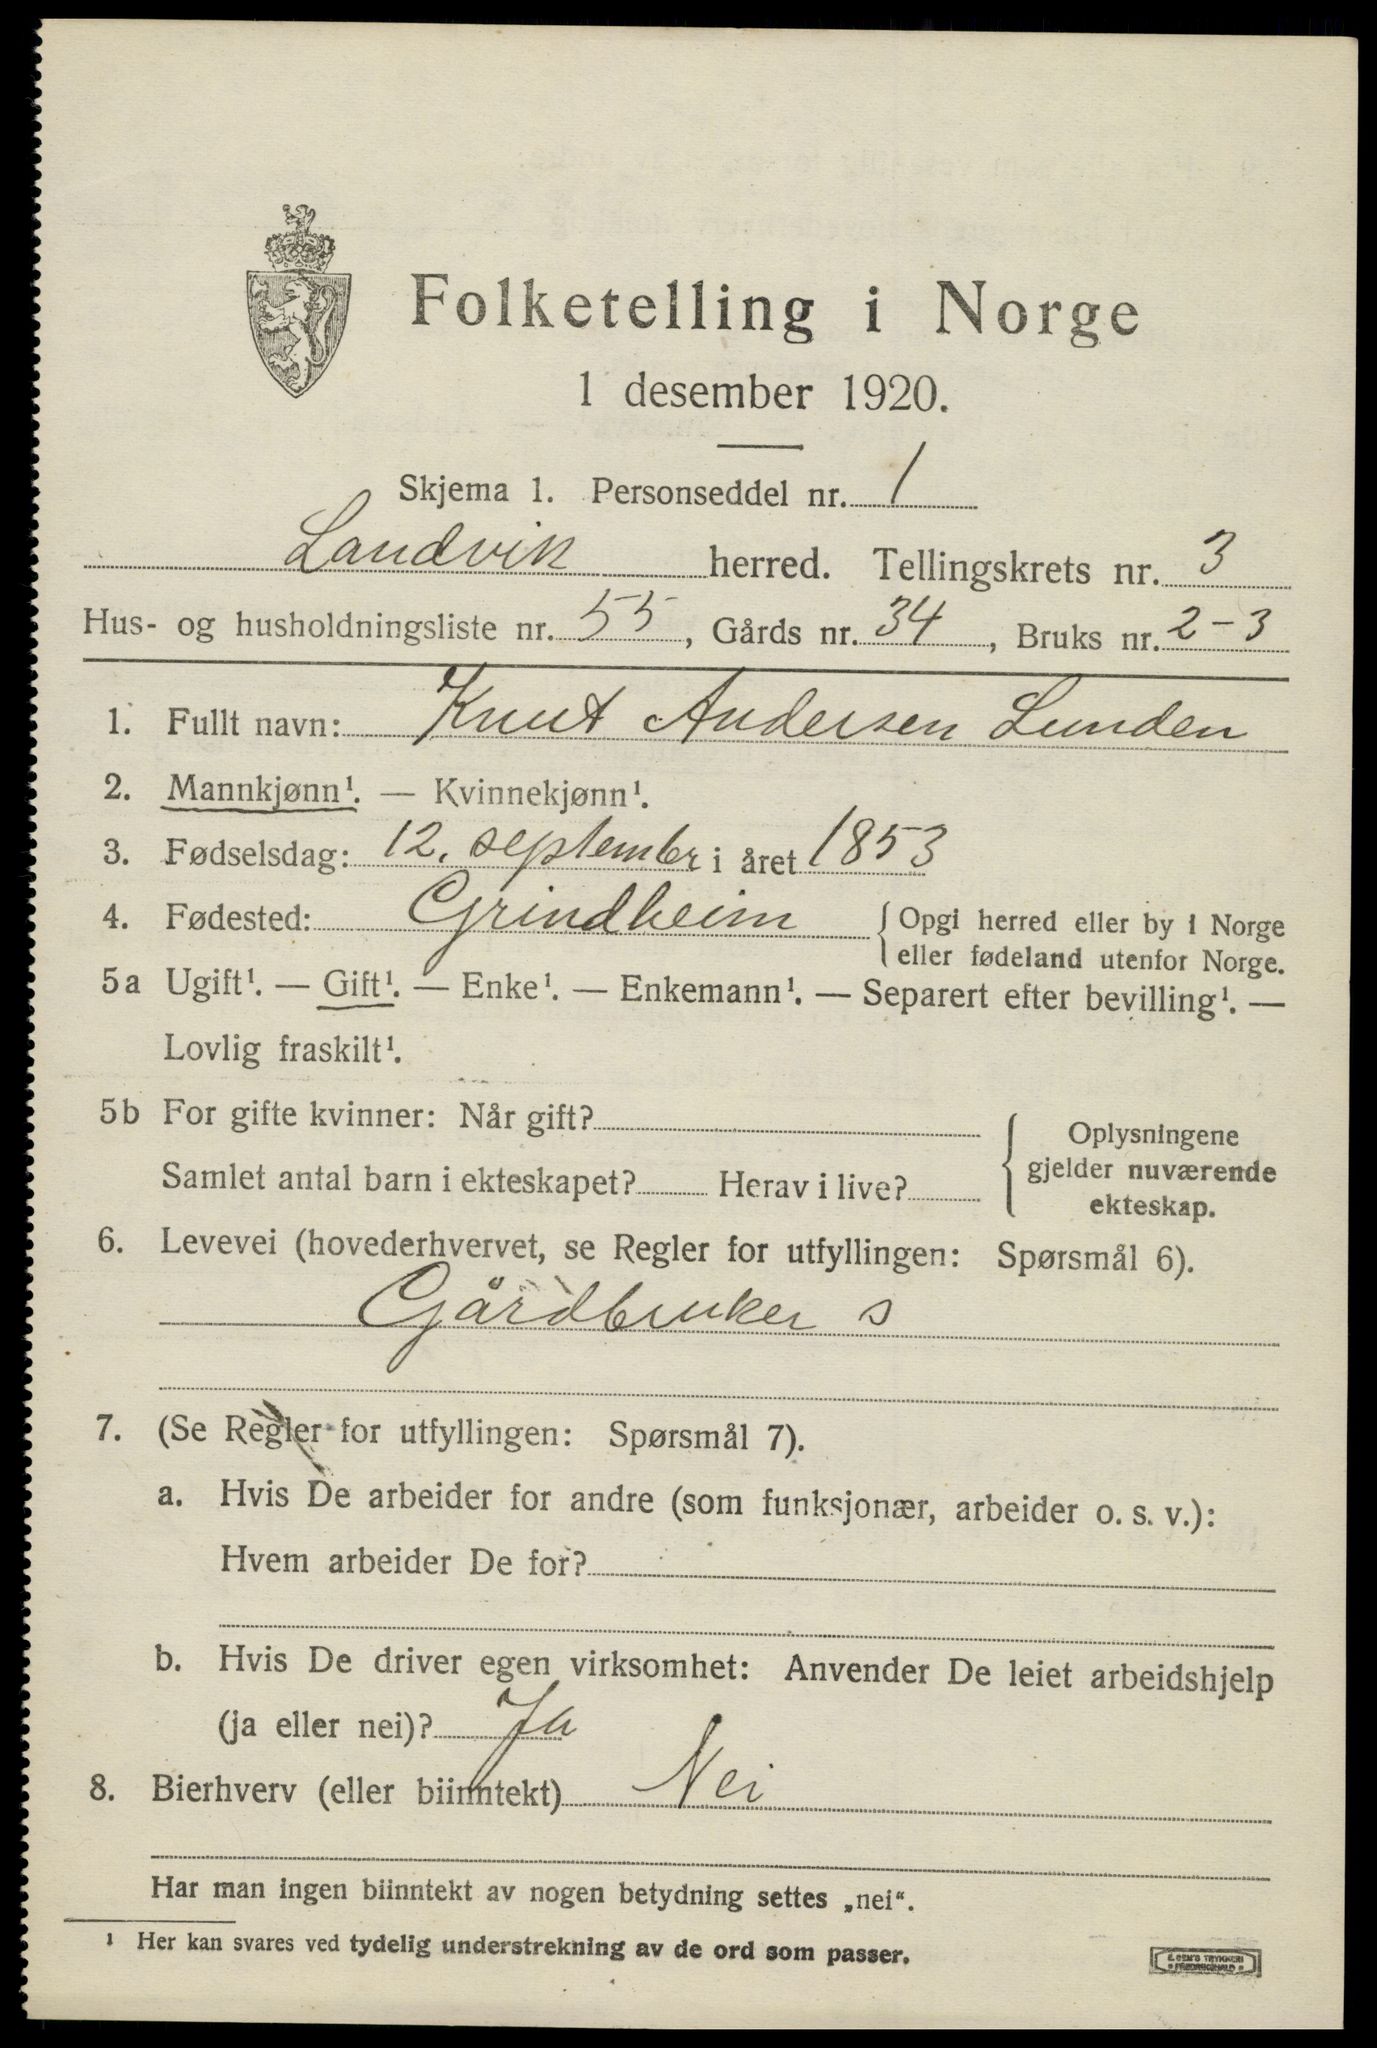 Folketelling i Norge
1 desember 1920.
Skjema 1. Personseddel nr. 1
Landvik herred. Tellingskrets nr. 3
Hus- og husholdningsliste nr. 55, Gårds nr. 34, Bruks nr. 2-3
1. Fullt navn: Knut Andersen Lunden
2. Mannkjønn¹. — Kvinnekjønn¹.
3. Fødselsdag: 12. september i året 1853
4. Fødested: Grindheim { Opgi herred eller by i Norge
eller fødeland utenfor Norge.
5a Ugift¹. — Gift¹. — Enke¹. — Enkemann¹. — Separert efter bevilling¹. —
Lovlig fraskilt¹.
5b For gifte kvinner: Når gift?
Samlet antal barn i ekteskapet? Herav i live?
{ Oplysningene
gjelder nuværende
ekteskap.
6. Levevei (hovederhvervet, se Regler for utfyllingen: Spørsmål 6).
Gårdbruker s
7. (Se Regler for utfyllingen: Spørsmål 7).
a. Hvis De arbeider for andre (som funksjonær, arbeider o. s. v.):
Hvem arbeider De for?
b. Hvis De driver egen virksomhet: Anvender De leiet arbeidshjelp
(ja eller nei)? Ja
8. Bierhverv (eller biinntekt) Nei
Har man ingen biinntekt av nogen betydning settes „nei“.
¹ Her kan svares ved tydelig understrekning av de ord som passer.
E. SEM'S TRYKKERI
FREDRIKSHALD